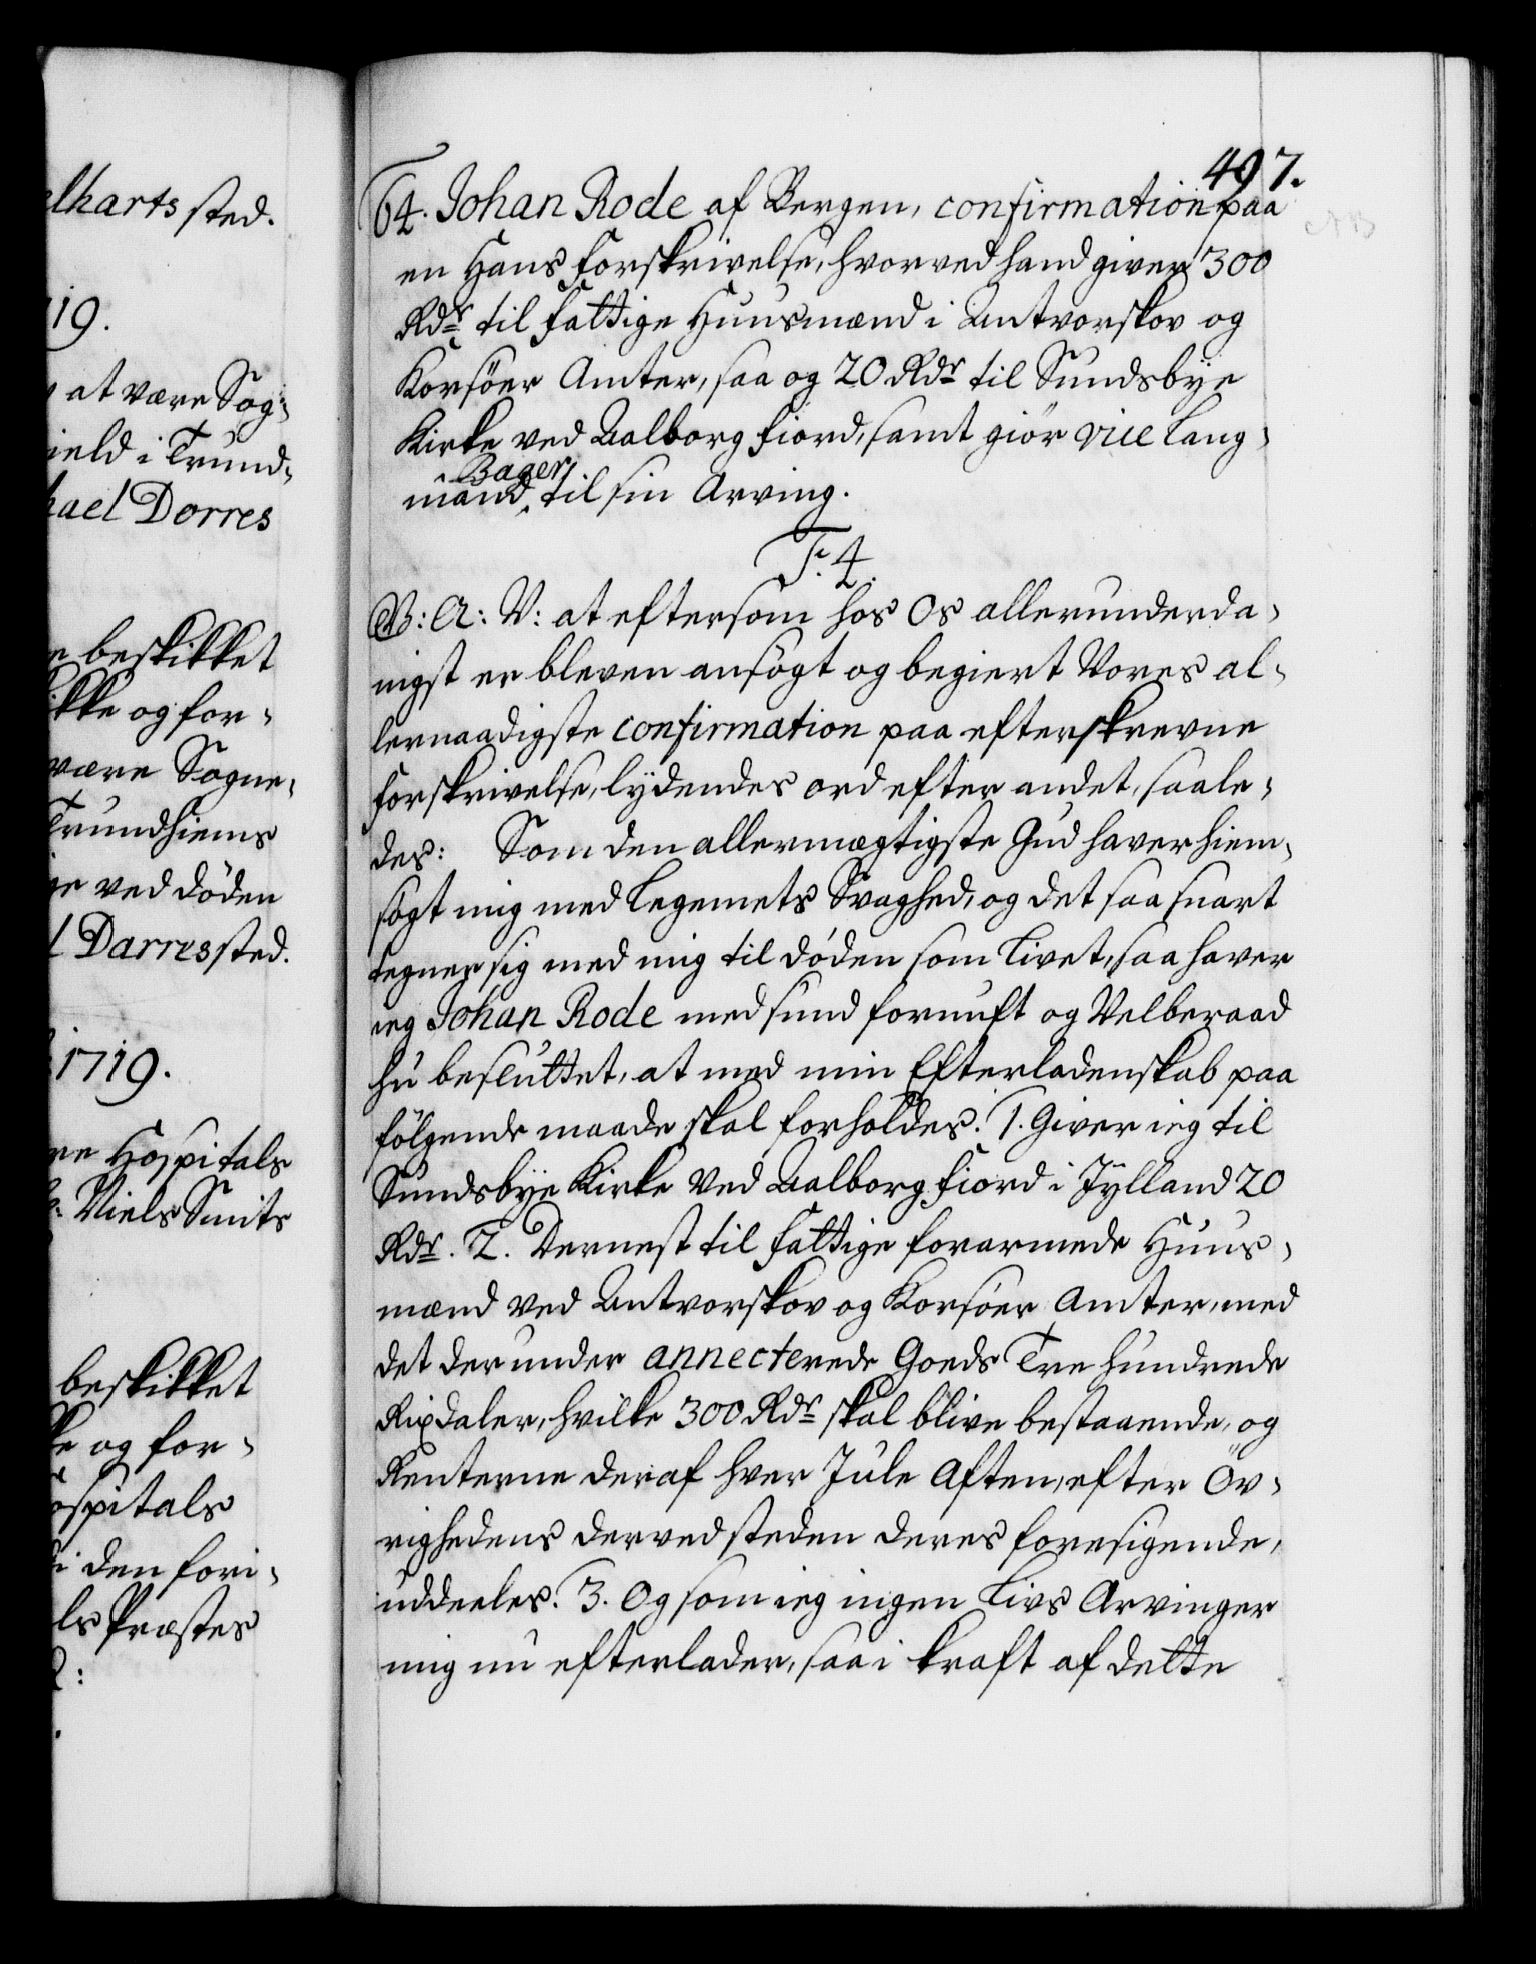 elharts sted.
19.
at være Sog-
ield i Trund-
hael Dorres
beskikket
ikke og for-
være Sogne-
Trundhiems
ved döden
l Darres sted.
1719.
re Hospitals
Niels Smits
beskikket
ke og for-
ospitals
i den fori-
ls Præstes
497.
64. Johan Rode af Bergen, confirmation paa
en Hans Forskrivelse, hvorved hand giver 300
Rdr til Fattige Huusmænd i Antvorskov og
Korsöer Amter, saa og 20 Rdr til Sundsbye
Kirke ved Aalborg Fiord, samt giör vice Laug-
Bager
mand til sin Arving.
F. 4.
G: A: V: at eftersom hos Os allerunderda-
nigst er bleven ansögt og begiert Vores al-
lernaadigste confirmation paa efterskrevne
Forskrivelse, lydendes ord efter andet, saale-
des: Som den allermægtigste Gud haver hiem-
sögt mig med Legemets Svaghed, og det saa snart
tegner sig med mig til döden som Livet, saa haver
ieg Johan Rode med sund fornuft og Velberaad
hu besluttet, at med min Efterladenskab paa
fölgende maade skal forholdes. 1. Giver ieg til
Sundsbye Kirke ved Aalborg Fiord i Jylland 20
Rdr. 2. Dernest til Fattige forarmede Huus-
mænd ved Antvorskov og Korsöer Amter, med
det der under annecterede Goeds Tre hundrede
Rixdaler, hvilke 300 Rdr skal blive bestaaende, og
Renterne deraf hver Jule Aften, efter Öv-
righedens derved steden deres foresigende,
uddeeles. 3. Og som ieg ingen Livs Arvinger
mig nu efterlader, saa i kraft af dette